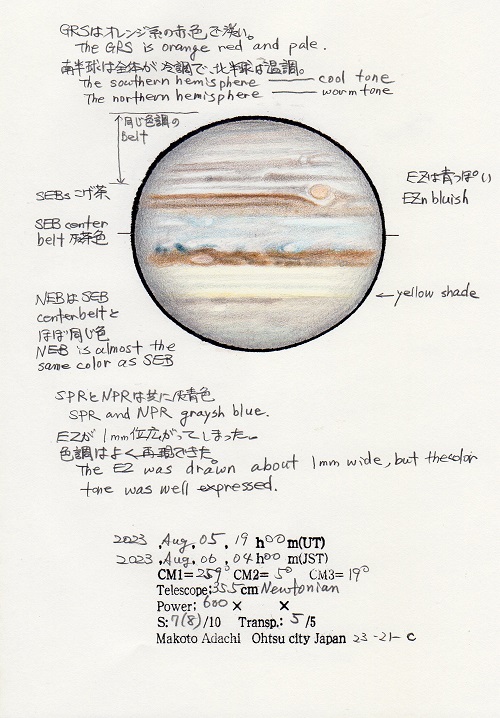 GRSはオレンジ系の赤色で淡い。
The GRS is orange red and pale.
南半球は全体が冷調で、北半球は温調。
The southern hemisphere —— cool tone
The northern hemisphere —— warm tone
同じ色調の
Belt
SEBsこげ茶
SEB center
belt 灰茶色
EZは青っぽい
EZn bluish
← yellow shade
NEBはSEB
center beltと
ほぼ同じ色
NEB is almost the
same color as SEB
SPRとNPRは共に灰青色
SPR and NPR graysh blue.
EZが1mm位広がってしまった。
色調はよく再現できた。
The EZ was drawn about 1mm wide, but the color
tone was well expressed.
2023 , Aug, 05, 19 h00 m(UT)
2023 , Aug, 06, 04 h00 m(JST)
CM1= 259° CM2= 5° CM3= 19°
Telescope: 355cm Newtonian
Power; 600 × ×
S: 7(8)/10 Transp.: 5/5
Makoto Adachi Ohtsu city Japan 23-21- c